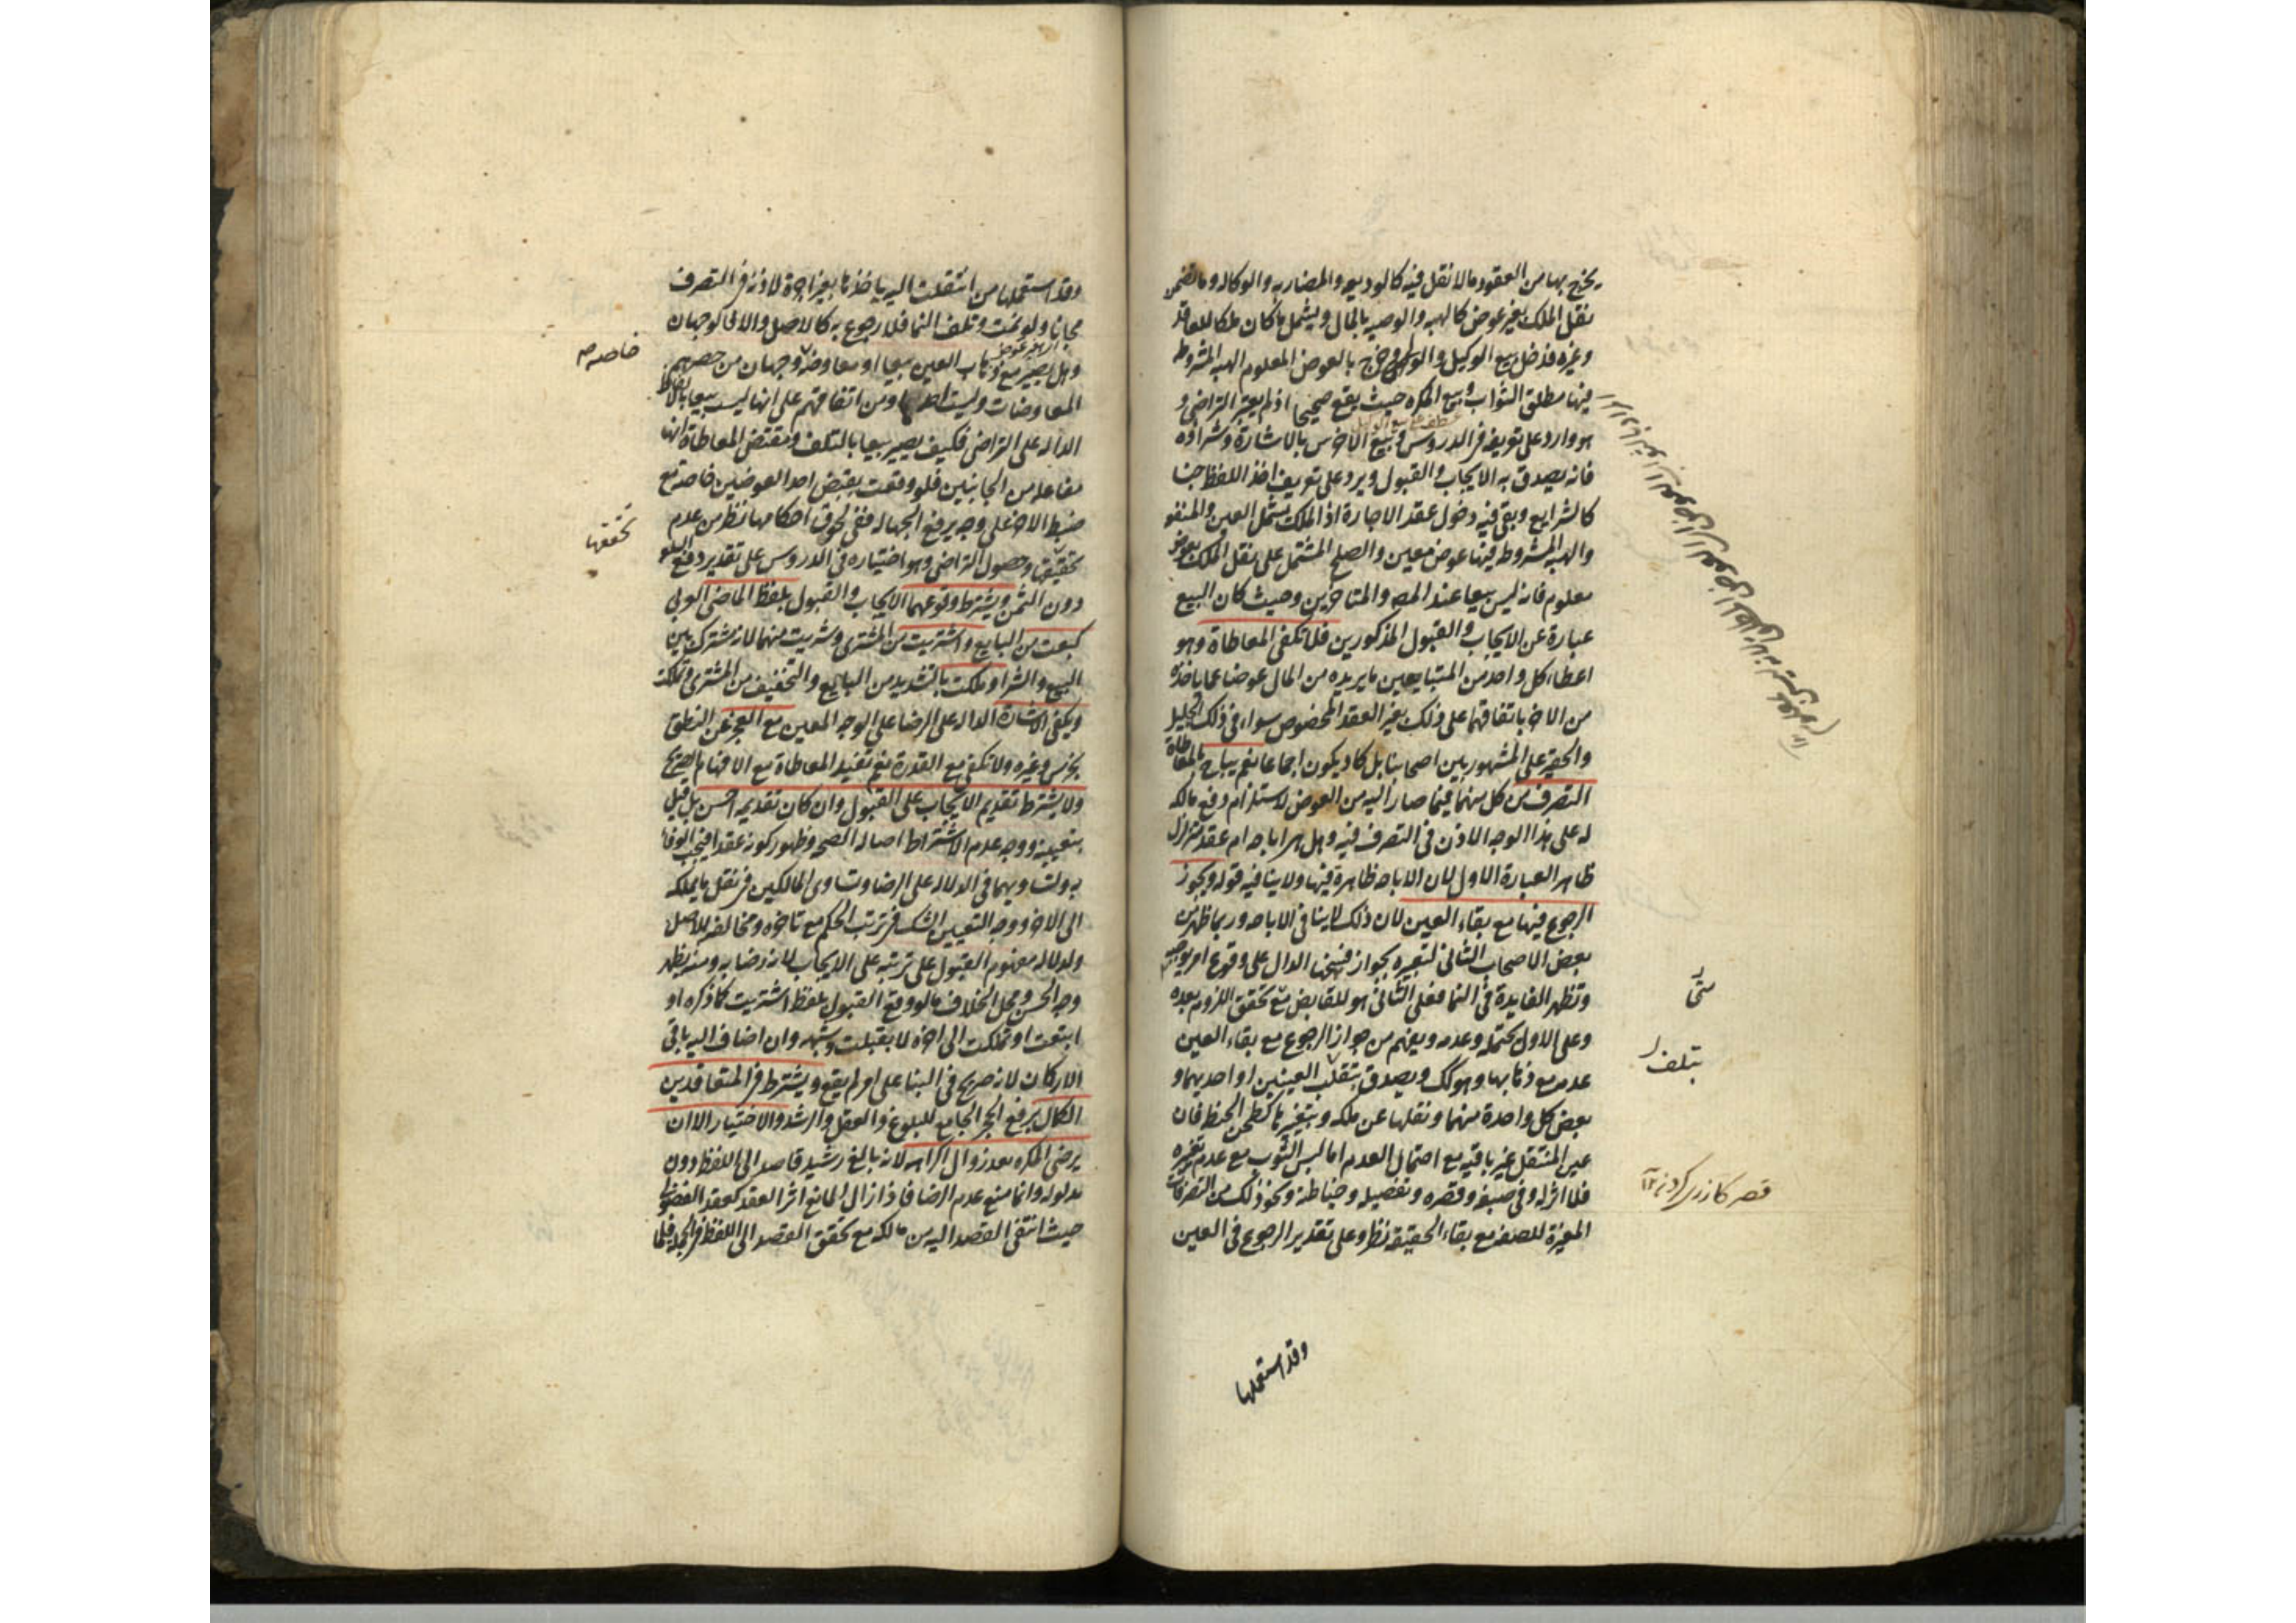 يخرج بها من العقود مالا نقل فيه كالوديعه والمضاربه والوكاله وما تضمن
نقل الملك بغير عوض كالهبه والوصيه بالمال ويشمل ما كان ملكا للعاقد
وغيره فدخل بيع الوكيل والولى وخرج بالعوض المعلوم الهبه المشروط
فيها مطلق الثواب وبيع المكره حيث يقع صحيحا اذ لم يعتبر التراضى و
هو وارد على تعريفه فى الدروس وبيع الاخرس بالاشارة وشراؤه
فانه يصدق به الايجاب والقبول ويرد على تعريف اخذ اللفظ جنسا
كالشرايع وبقى فيه دخول عقد الاجارة اذ الملك يشمل العين والمنفعه
والهبه المشروط فيها عوض معين والصلح المشتمل على نقل الملك بعوض
معلوم فانه ليس بيعا عند المصـ والمتاخرين وحيث كان البيع
عبارة عن الايجاب والقبول المذكورين فلا تكفى المعاطاة وهو
اعطاء كل واحد من المتبايعين ما يريده من المال عوضا عما ياخذه
من الاخر باتفاقهما على ذلك بغير العقد المخصوص سواء فى ذلك الجليل
والحقير على المشهور بين اصحابنا بل كاد يكون اجماعا نعم يباح بالمعاطاة
التصرف من كل منهما فيما صار اليه من العوض لاستلزام دفع مالكه
له على هذا الوجه الاذن فى التصرف فيه وهل هى اباحه ام عقد متزلزل
ظاهر العبارة الاول لان الاباحه ظاهرة فيها ولا ينافيه قوله ويجوز
الرجوع فيها مع بقاء العين لان ذلك لاينافى الاباحه وربما ظهر من
بعض الاصحاب الثانى لتعبيره بجواز فسخها الدال على وقوع امر يوجبه
وتظهر الفايدة فى النما فعلى الثانى هو للقابض مع تحقق اللزوم بعده
وعلى الاول يحتمله وعدمه ويفهم من جواز الرجوع مع بقاء العين
عدمه مع ذهابها وهو كك ويصدق بتلف العينين او احديهما و
بعض كل واحدة منهما ونقلها عن ملكه وبتغيرها كطحن الحنطه فان
عين المنتقل غير باقيه مع احتمال العدم اما لبس الثوب مع عدم تغيره
فلا اثر له وفى صبغه وقصره وتفصيله وخياطته ونحو ذلك من التصرفات
المغيرة للصفه مع بقاء الحقيقه نظر وعلى تقدير الرجوع فى العين
متى
بتلف
قصر كازرى كردن ١٢
وقد استعملها
وقد استعملها من انتقلت اليه ياخذها بغير اجرة لاذنه فى التصرف
مجانا ولو نمت وتلف النما فلا رجوع به كالاصل والا فالوجهان
وهل يصير مع ذهاب العين بيعا او معاوضه وجهان من حصرهم
المعاوضات وليست احدها ومن اتفاقهم على انها ليست بيعا بالالفاظ
الداله على التراضى فكيف يصير بيعا بالتلف ومقتضى المعاطاة انها
مفاعله من الجانبين فلو وقعت بقبض احد العوضين خاصة مع
ضبط الاخر على وجه يرفع الجهاله ففى لحوق احكامها نظر من عدم
تحقيقها وحصول التراضى وهو اختياره فى الدروس على تقدير دفع السلعه
دون الثمن ويشترط وقوعهما الايجاب والقبول بلفظ الماضى العربى
كبعت من البايع واشتريت من المشترى وشريت منهما لانه مشترك بين
البيع والشرا وملكت بالتشديد من البايع والتخفيف من المشترى وتملكت
ويكفى الاشارة الداله على الرضا على الوجه المعين مع العجز عن النطق
بخرس وغيره ولا تكفى مع القدرة نعم تفيد المعاطاة مع الافهام الصريح
ولا يشترط تقديم الايجاب على القبول وان كان تقديمه احسن بل قيل
بتعيينه ووجه عدم الاشتراط اصاله الصحه وظهور كونه عقدا فيجب الوفا
به ولتساويهما فى الدلاله على الرضا وتساوى المالكين فى نقل ما يملكه
الى الاخر ووجه التعيين الشك فى ترتب الحكم مع تاخره ومخالفته للاصل
ولدلاله مفهوم القبول على ترتبه على الايجاب لانه رضا به ومنه يظهر
وجه الحسن ومحل الخلاف ما لو وقع القبول بلفظ اشتريت كما ذكره او
ابتعت او تملكت الى اخره لا بقبلت وشبهه وان اضاف اليه باقى
الاركان لانه صريح فى البنا على امر لم يقع ويشترط فى المتعاقدين
الكمال برفع الحجر الجامع للبلوغ والعقل والرشد والاختيار الا ان
يرضى المكره بعد زوال اكراهه لانه بالغ رشيد قاصد الى اللفظ دون
مدلوله وانما منع عدم الرضا فاذا زال المانع اثر العقد كعقد الفضولى
حيث انتفى القصد اليه من مالكه مع تحقق القصد الى اللفظ فى الجمله فلما
خاصه
تحققها